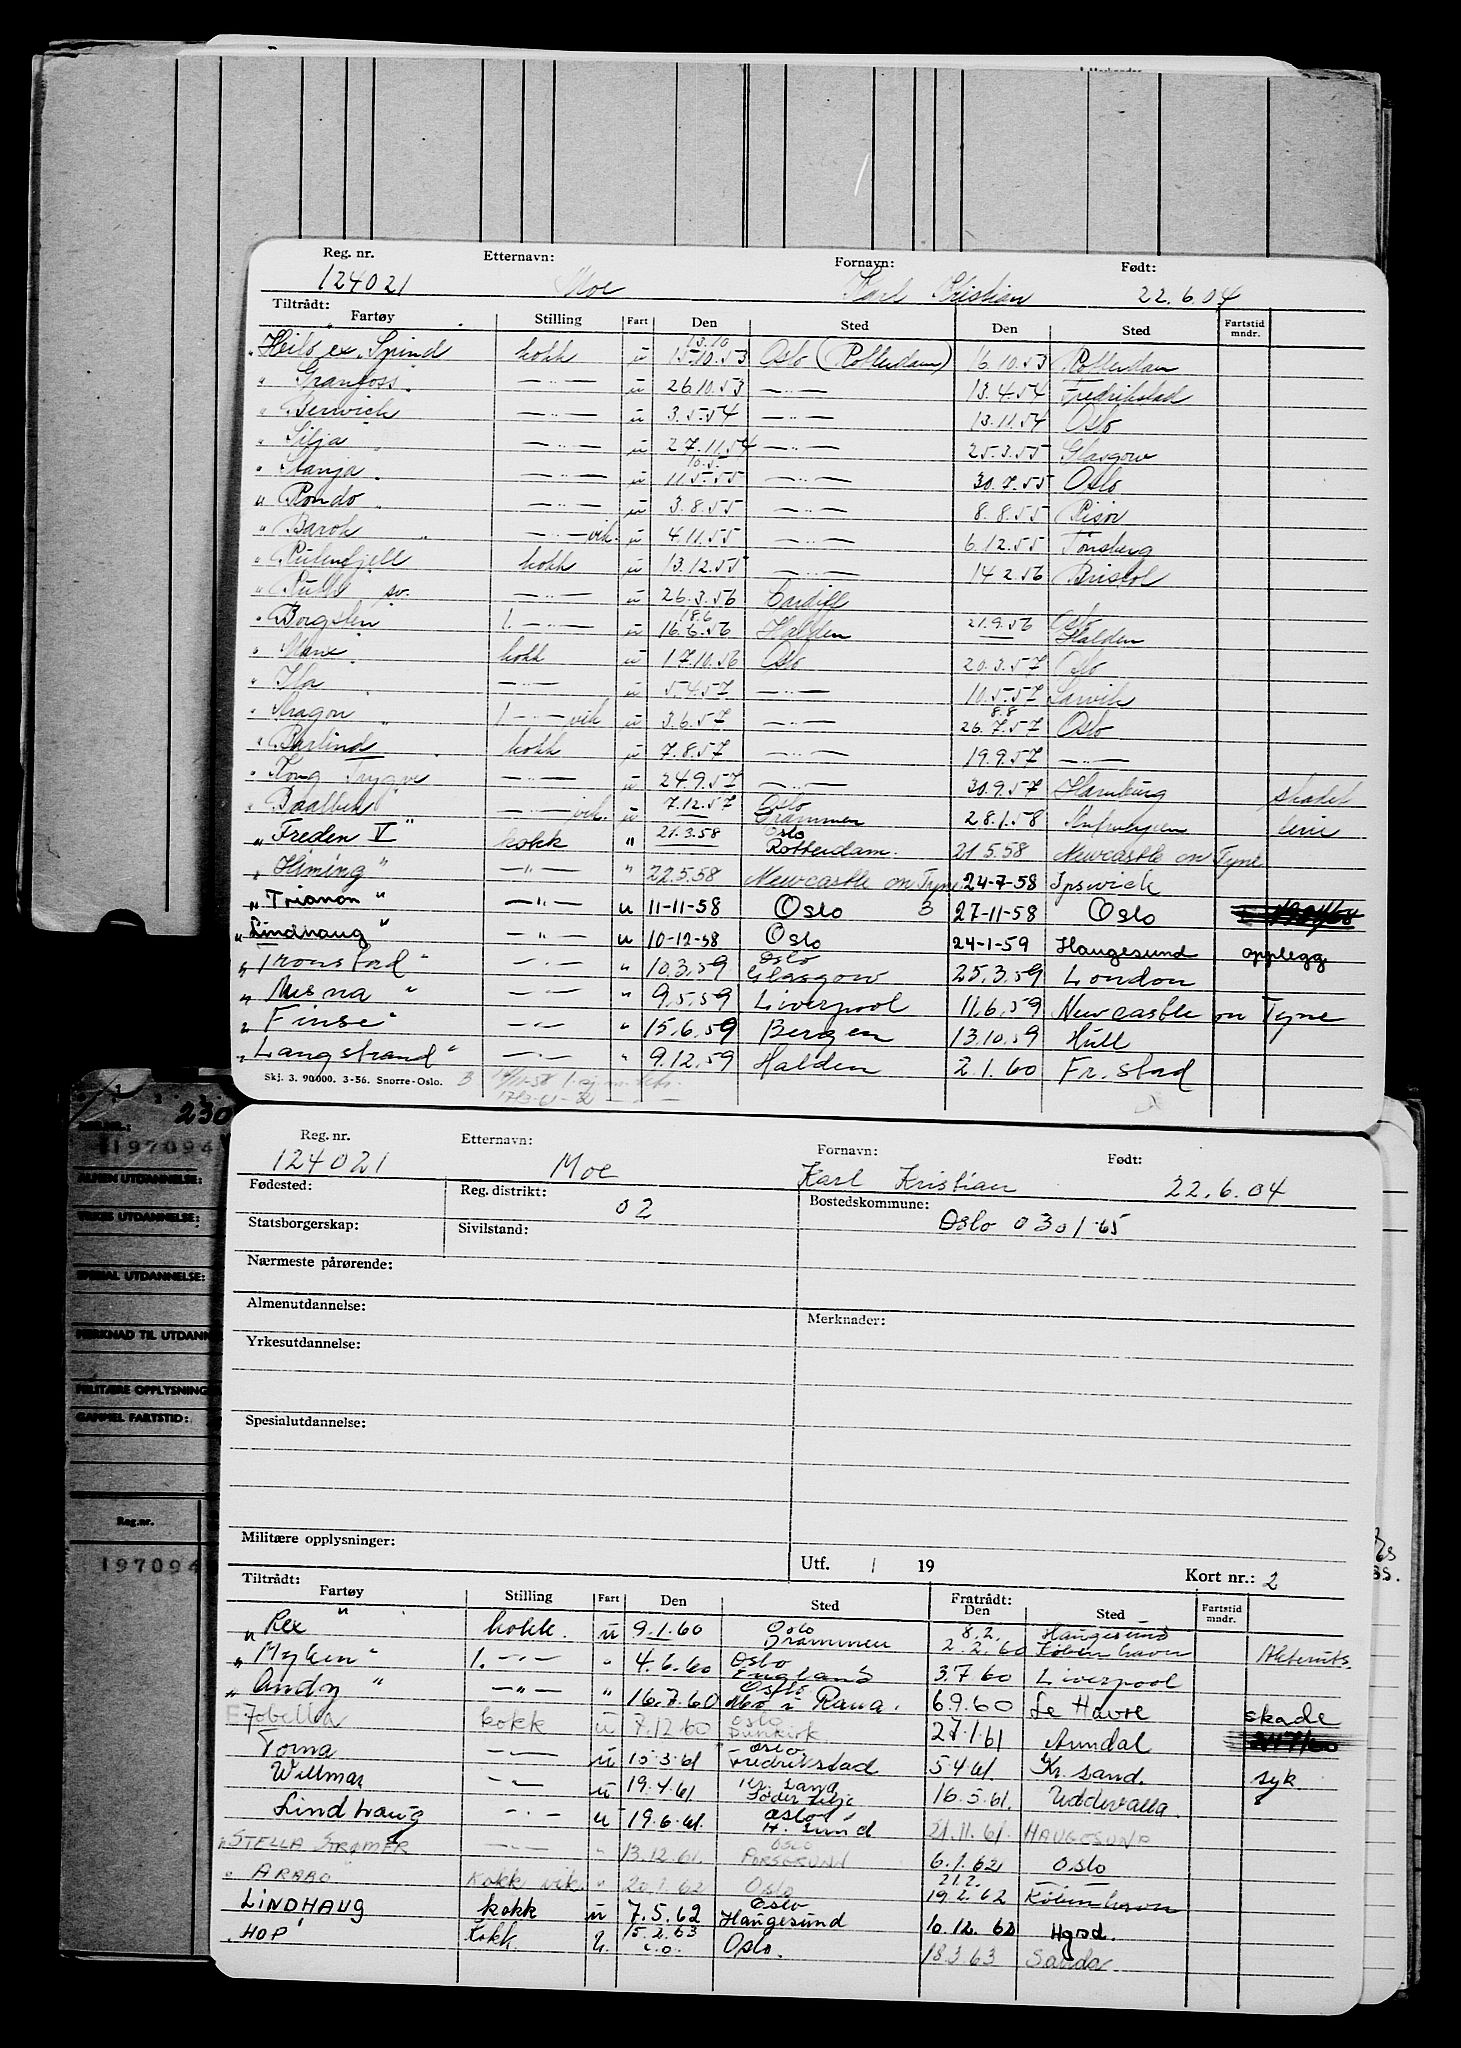 Reg. nr. Etternavn: Fornavn: Født:
124021 Moe Karl Kristian 22.6.04
Tiltrådt:
Fartøy Stilling Fart Den Sted Den Sted Fartstid mndr.
13.10
"Heilo" ex. "Spind kokk u 15.10.53 Oslo (Rotterdam) 16.10.53 Rotterdam
" Granfoss" —"— u 26.10.53 —"— 13.4.54 Fredrikstad
" Berwick —"— u 3.5.54 —"— 13.11.54 Oslo
" Silja —"— u 27.11.54 —"— 25.3.55 Glasgow
10.5.
" Stanja —"— u 11.5.55 —"— 30.7.55 Oslo
" Rondo —"— u 3.8.55 —"— 8.8.55 Risør
" Barok —"— vik. u 4.11.55 —"— 6.12.55 Tønsberg
" kokk u 13.12.55 —"— 14.2.56 Bristol
" sv. —"— u 26.3.56 Cardiff
18.6
" Borgsten 1. —"— u 16.6.56 Halden 21.9.56 Oslo Halden
" kokk u 17.10.56 Oslo 20.3.57 Oslo
" Ila —"— u 5.4.57 —"— 10.5.57 Larvik
8.8
" 1. —"— vik u 3.6.57 —"— 26.7.57 Oslo
" kokk u 7.8.57 —"— 19.9.57 —"—
" Kong Trygve —"— u 24.9.57 —"— 30.9.57 Hamburg skadet
" Baalbek —"— vik. u 7.12.57 Oslo Drammen 28.1.58 Antwerpen
" Freden V" kokk " 21.3.58 Oslo Rotterdam. 21.5.58 Newcastle on Tyne
" Heming" —"— " 22.5.58 Newcastle on Tyne 24-7-58 Ipswich
" Trianon " —"— u 11-11-58 Oslo 3 27-11-58 Oslo
" Lindhaug " —"— u 10-12-58 Oslo 24-1-59 Haugesund opplegg
" Tronstad" —"— " 10.3.59 Oslo Glasgow 25.3.59 London
" Mesna " —"— " 9.5.59 Liverpool 11.6.59 Newcastle on Tyne
" Finse" —"— " 15.6.59 Bergen 13.10.59 Hull
" Langstrand" —"— " 9.12.59 Halden 2.1.60 Fr. stad
Skj. 3. 90.000. 3-56. Snorre-Oslo. 3
230
197094
ALMEN UTDANNELSE:
YRKES UTDANNELSE:
SPESIAL UTDANNELSE:
MERKNAD TIL UTDANN
MILITÆRE OPPLYSNING
GAMMEL FARTSTID:
Reg.nr.
197094
Reg. nr. Etternavn: Fornavn: Født:
124021 Moe Karl Kristian 22.6.04
Fødested: Reg. distrikt: 02 Bostedskommune: Oslo 0301.65
Statsborgerskap: Sivilstand:
Nærmeste pårørende:
Almenutdannelse: Merknader:
Yrkesutdannelse:
Spesialutdannelse:
Militære opplysninger:
Utf. / 19 Kort nr.: 2
Tiltrådt: Fratrådt:
Fartøy Stilling Fart Den Sted Den Sted Fartstid mndr.
" Rex " kokk. u 9.1.60 Oslo Drammen 8.2. 2.2.60 Haugesund København
" Myken " 1. —"— " 4.6.60 Oslo England 3.7.60 Liverpool
" Andy " —"— " 16.7.60 Oslo Mo i Rana. 6.9.60 Le Havre skade
kokk u 7.12.60 Oslo Dunkirk 27.1.61 Arendal
Torna —"— u 15.3.61 Oslo Fredrikstad 5.4.61 Kr. sand. syk
Willmar —"— u 19.4.61 Kr. sand 16.5.61. Uddevalla.
Lindhaug —"— u 19.6.61. Oslo H. sund 21.11.61. HAUGESUND
" STELLA —"— " 13.12.61. OSLO PORSGRUNN 6.1.62 Oslo
" Kokk vik " 20.1.62 Oslo 21.2. 19.2.62 København
LINDHAUG kokk u 7.5.62 Oslo Haugesund 10.12.62 Hgsd.
" HOP" Kokk u. 15.2.63 Oslo. 18.3.63 Sauda.